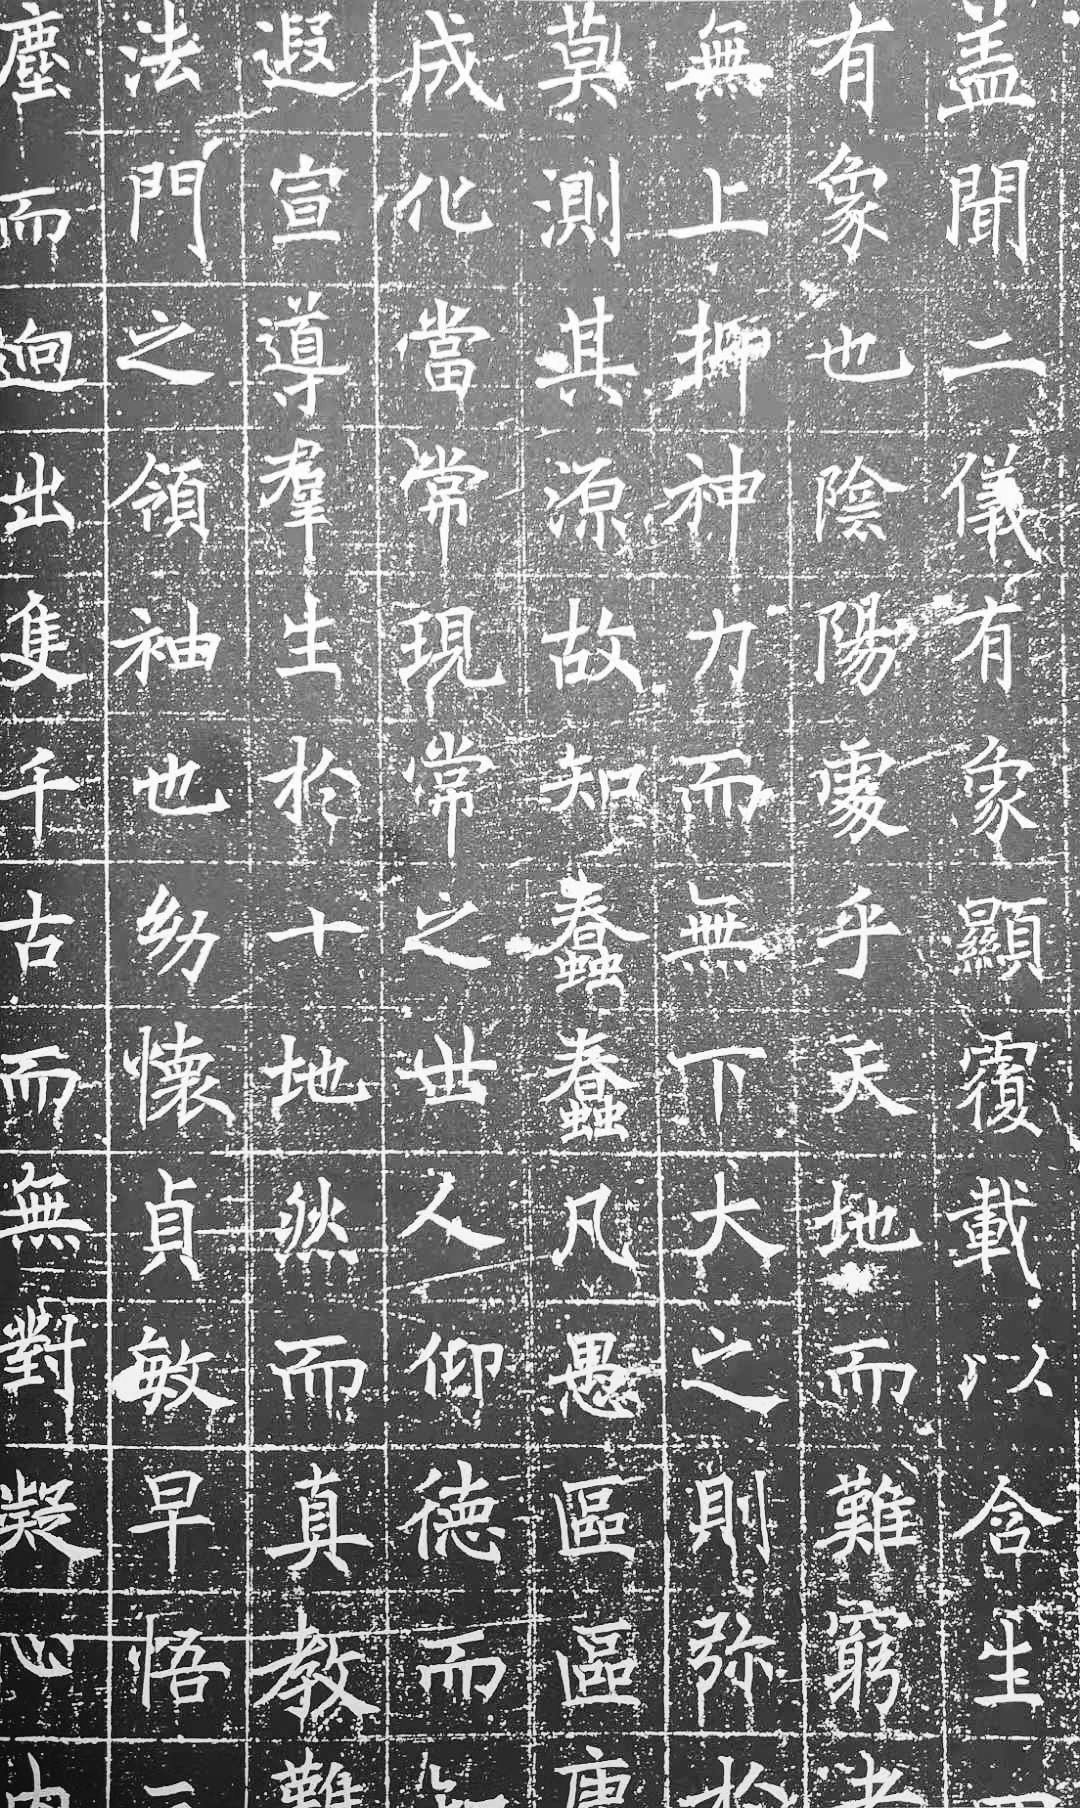 盖聞二儀有象顯覆載以含生
有象也陰陽處乎天地而難窮者
無上抑神力而無下大之則弥於
莫測其源故知蠢蠢凡愚區區庸
成化當常現常之世人仰德而
遐宣導羣生於十地然而真教難
法門之領袖也幼懷貞敏早悟
塵而迥出隻千古而無對凝心内